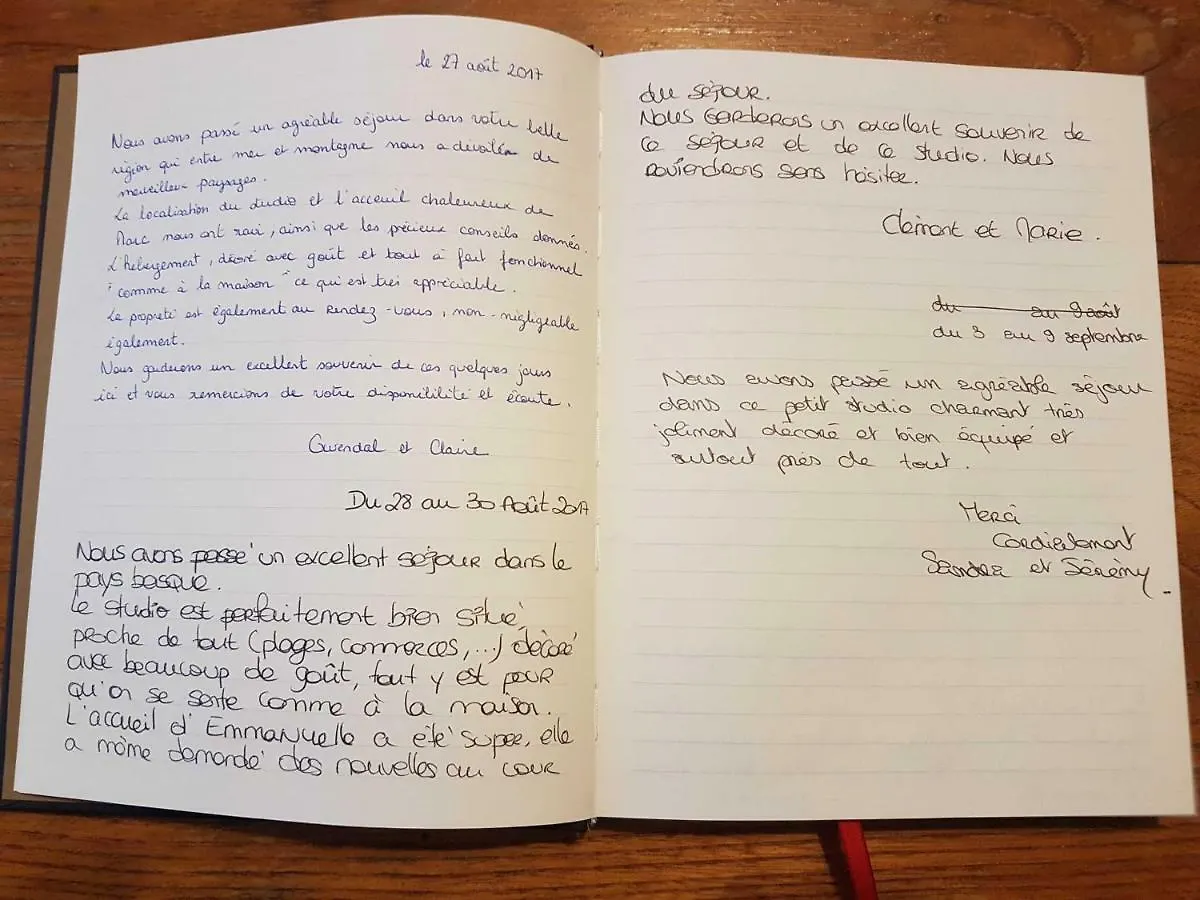 le 27 août 2017
Nous avons passé un agréable séjour dans votre belle
région qui entre mer et montagne nous a dévoilée de
merveilleux paysages.
La localisation du studio et l'acceuil chaleureux de
Marc nous ont ravi, ainsi que les précieux conseils donnés.
L'hébergement, décoré avec goût et tout à fait fonctionnel
"comme à la maison" ce qui est très appréciable.
La propreté est également au rendez-vous, non-négligeable
également.
Nous garderons un excellent souvenir de ces quelques jours
ici et vous remercions de votre disponibilité et écoute.
Gwendal et Claire
Du 28 au 30 Août 2017
Nous avons passé un excellent séjour dans le
pays basque.
Le studio est parfaitement bien situé,
proche de tout (plages, commerces, ...) décoré
avec beaucoup de goût, tout y est pour
qu'on se sente comme à la maison.
L'accueil d'Emmanuelle a été super, elle
a même demandé des nouvelles au cour
du séjour.
Nous garderons un excellent souvenir de
ce séjour et de ce studio. Nous
reviendrons sans hésiter.
Clément et Marie.
du au 9 août
du 3 au 9 septembre
Nous avons passé un agréable séjour
dans ce petit studio charmant très
joliment décoré et bien équipé et
surtout près de tout.
Merci
Cordialement
Sandra et Jérémy.